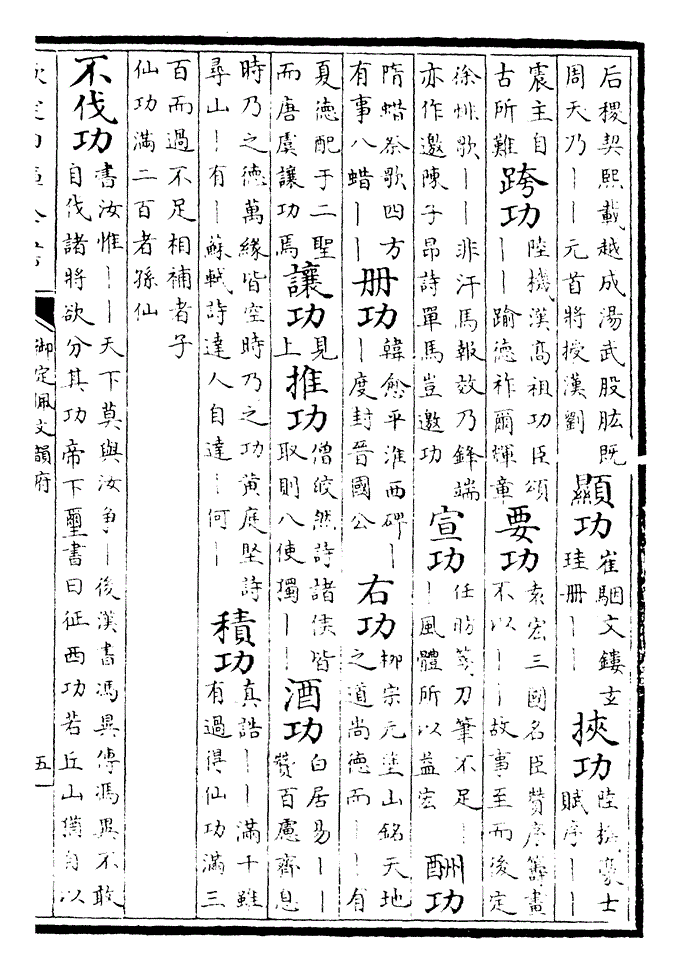 后稷契熙載越成湯武股肱既周天乃丨丨元首將授漢劉 顯功 崔駰文鏤玄珪冊丨丨 挾功 陸機豪士賦序丨丨
震主自古所難 跨功 陸機漢髙祖功臣頌丨丨踰德祚爾煇章 要功 袁宏三國名臣贊序籌畫不以丨丨故事至而後定
徐悱歌丨丨非汗馬報效乃鋒端亦作邀陳子昂詩單馬豈邀功 宣功 任昉箋刀筆不足丨丨風體所以益宏 酬功
隋蜡祭歌四方有事八蜡丨丨 冊功 韓愈平淮西碑丨丨度封晉國公 右功 栁宗元塗山銘天地之道尚德而丨丨有
夏德配于二聖而唐虞讓功焉 讓功 見上 推功 僧皎然詩諸侯皆取則八使獨丨丨 酒功 白居易丨丨贊百慮齊息
時乃之德萬緣皆空時乃之功黄庭堅詩尋山丨有丨蘇軾詩達人自達丨何丨 積功 真誥丨丨滿十雖有過得仙功滿三
百而過不足相補者子仙功滿二百者孫仙
不伐功 書汝惟丨丨天下莫與汝争丨後漢書馮異傳馮異不敢自伐諸將欲分其功帝下璽書曰征西功若丘山猶自以
欽定四庫全書
御定佩文韻府
五